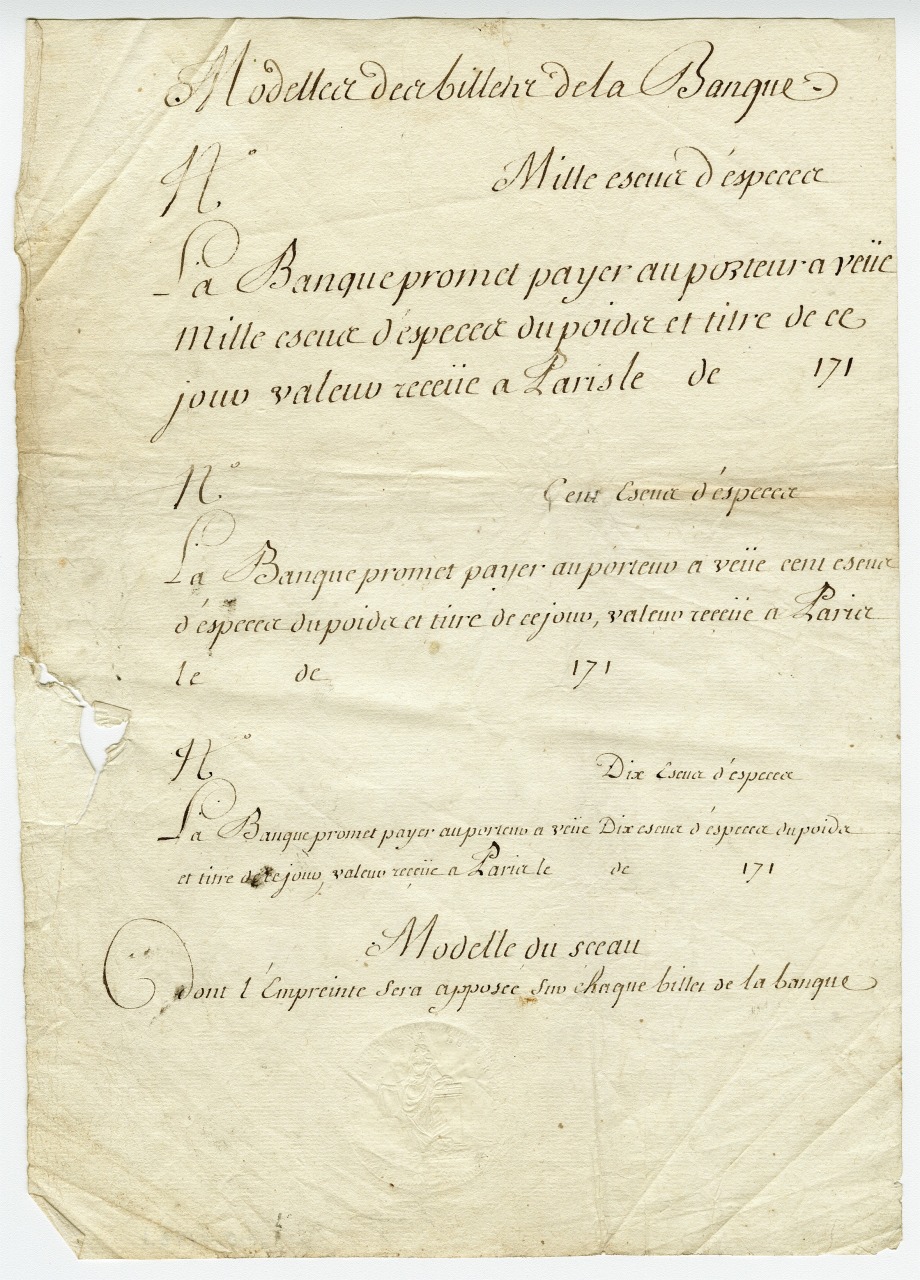 Modelles des billets de la Banque
N.° Mille escus d'especes
La Banque promet payer au porteur a veüe
Mille escus d'especes du poids et titre de ce
jour valeur receüe a Paris le de 171
N.° Cent Escus d'especes
La Banque promet payer au porteur a veüe cent escus
d'especes du poids et titre de ce jour, valeur receüe a Paris
le de 171
N.° Dix Escus d'especes
La Banque promet payer au porteur a veüe Dix escus d'especes du poids
et titre de ce jour, valeur receüe a Paris le de 171
Modelle du sceau
dont l'Empreinte sera apposée sur chaque billet de la banque